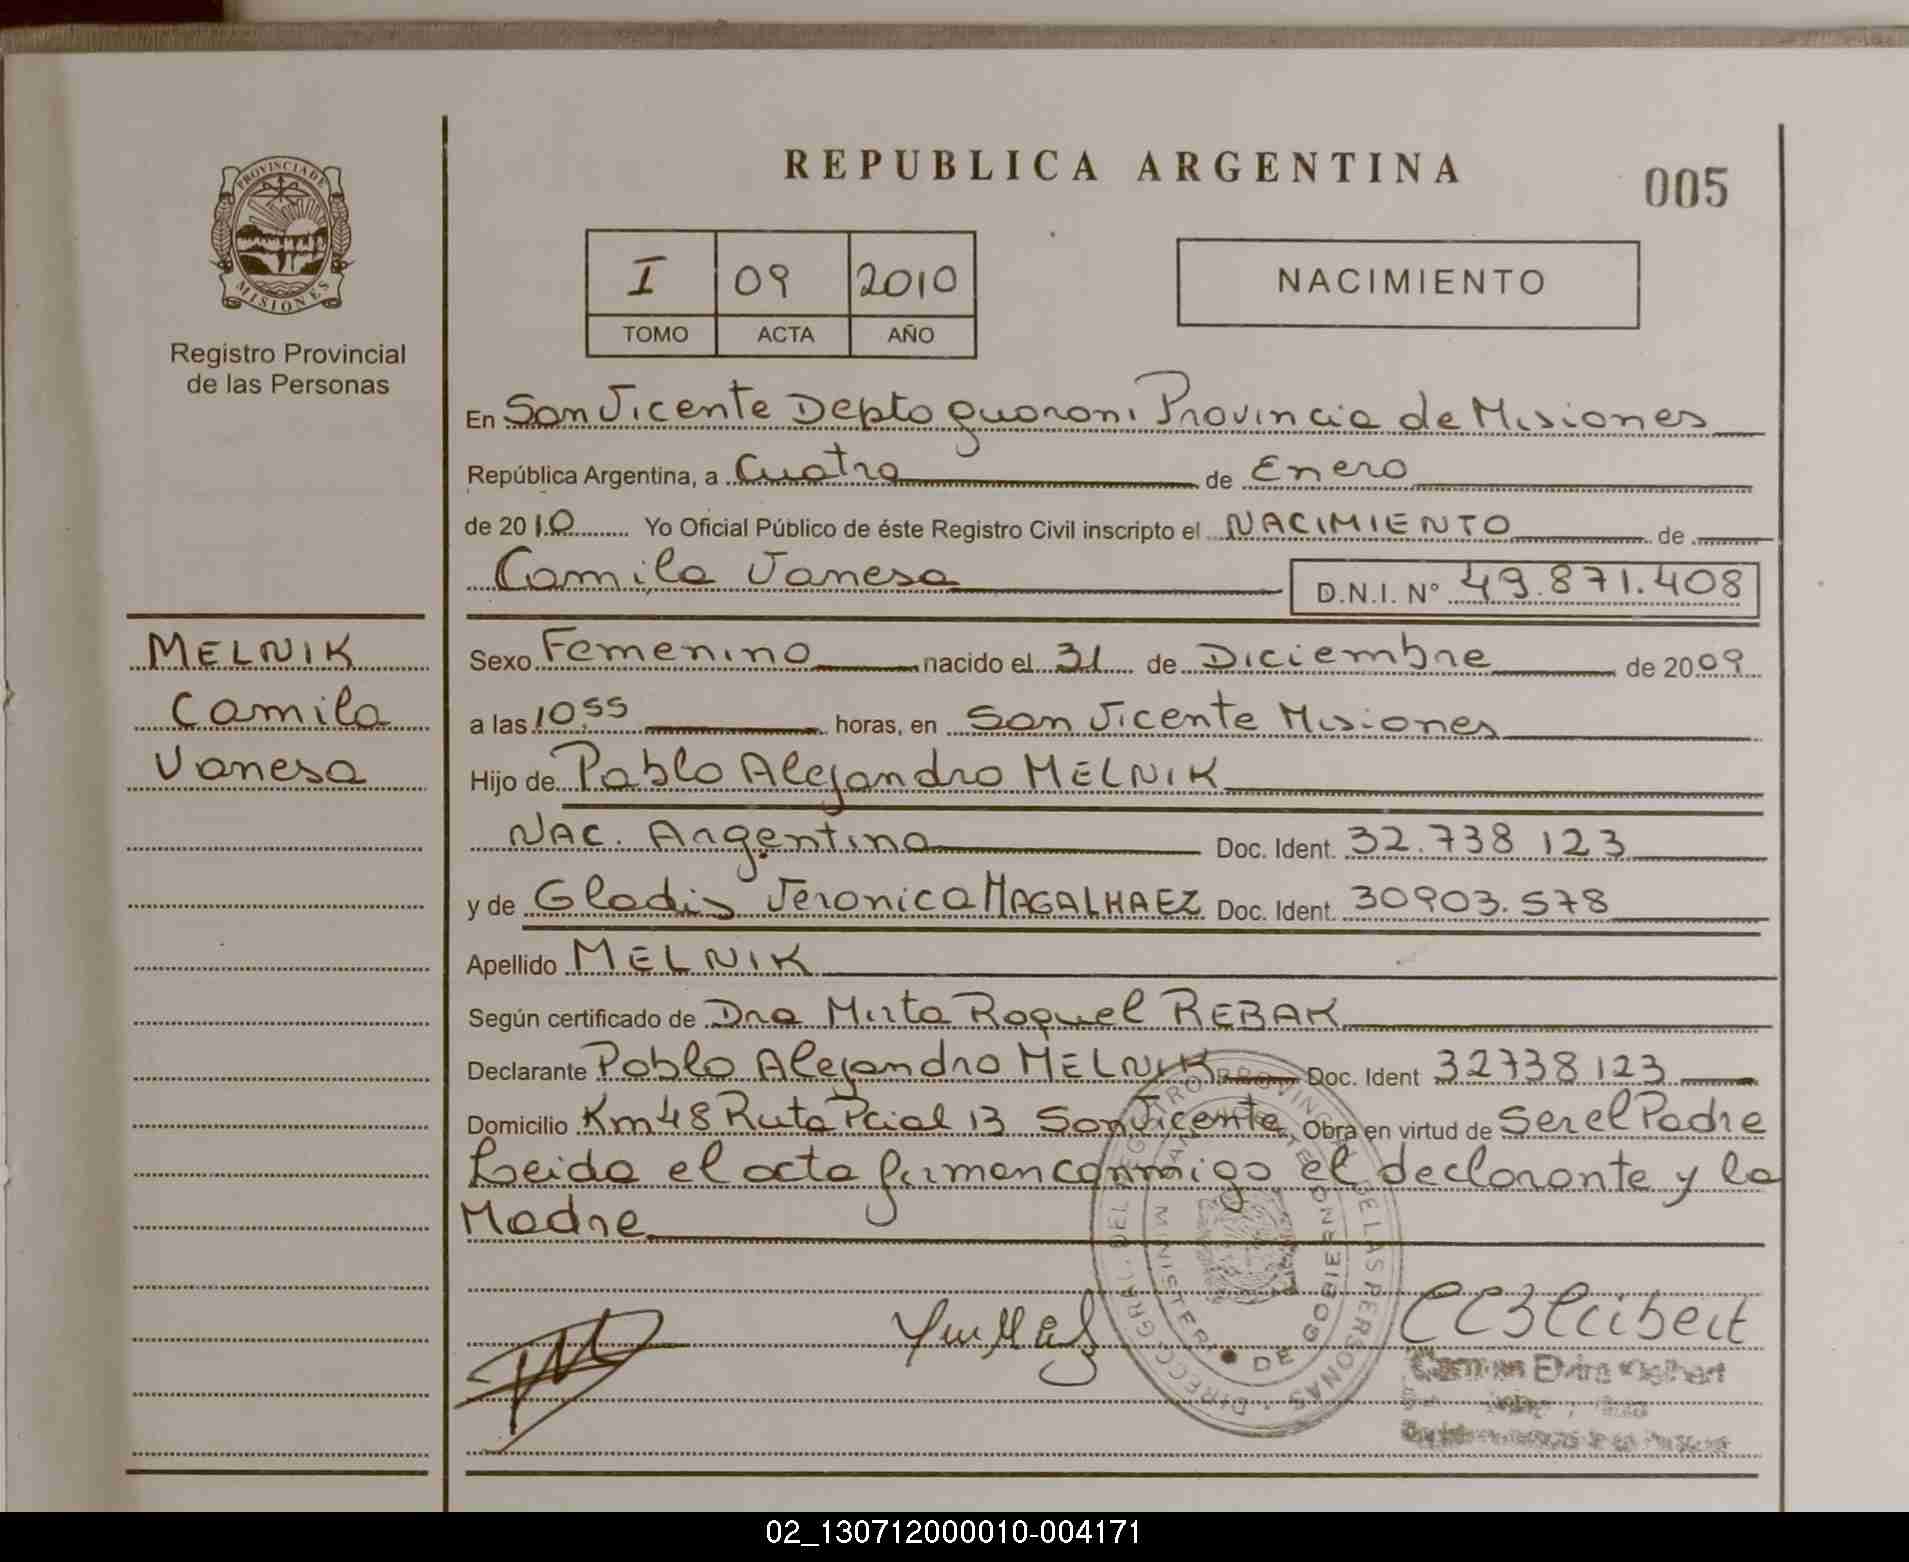 PROVINCIA DE
MISIONES
Registro Provincial
de las Personas
REPUBLICA ARGENTINA
005
I 09 2010
TOMO ACTA AÑO
NACIMIENTO
En San Vicente Depto guarani Provincia de Misiones
República Argentina, a Cuatro de Enero
de 2010 Yo Oficial Público de éste Registro Civil inscripto el NACIMIENTO de
Camila Vanesa D.N.I. N° 49.871.408
MELNIK
Camila
Vanesa
Sexo Femenino nacido el 31 de Diciembre de 2009
a las 10,55 horas, en San Vicente Misiones
Hijo de Pablo Alejandro MELNIK
NAC. Argentina Doc. Ident. 32.738 123
y de Gladis Veronica MAGALHAEZ Doc. Ident. 30903.578
Apellido MELNIK
Según certificado de Dra Mirta Raquel REBAK
Declarante Pablo Alejandro MELNIK Doc. Ident 32738123
Domicilio Km48 Ruta Pcial 13 San Vicente Obra en virtud de Ser el Padre
Leida el acta firman conmigo el declarante y la
Madre
DIRECC. GRAL. DEL REGISTRO PROVINCIAL DE LAS PERSONAS
MINISTERIO DE GOBIERNO
02_130712000010-004171